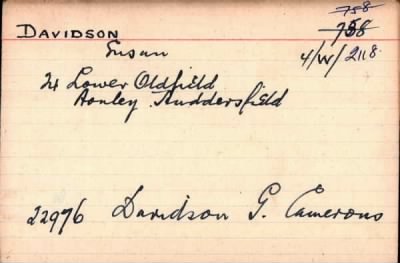 758
DAVIDSON 758
Susan 4/W/2118.
24 Lower Oldfield
Honley Huddersfield
22976 Davidson G. Camerons